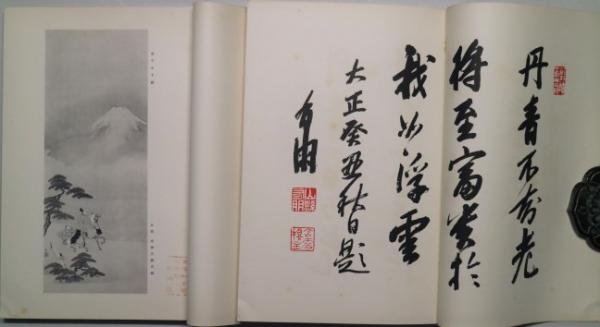 丹青不知老
将至富貴於
我如浮雲
大正癸丑秋日題
有朋